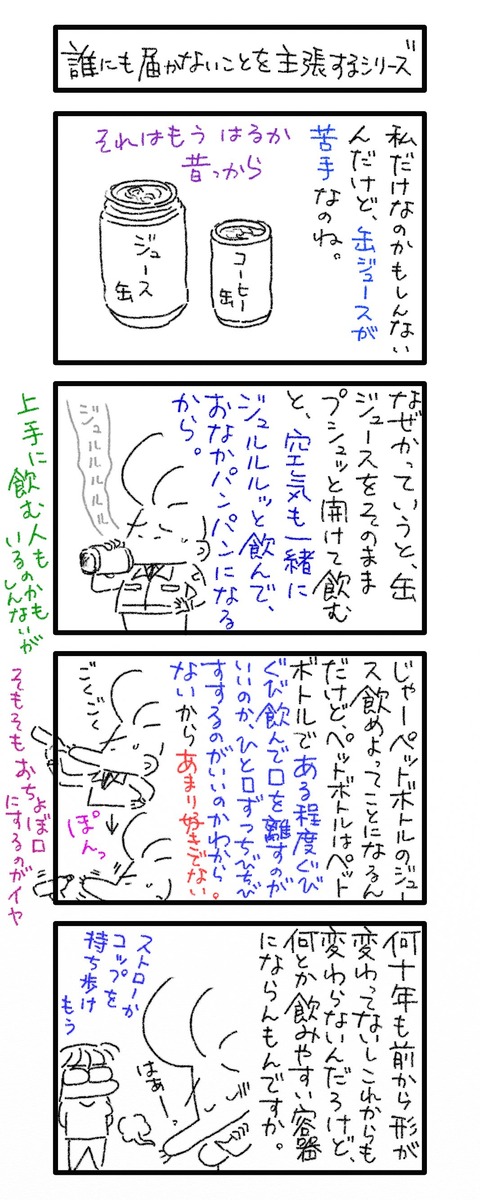 誰にも届かないことを主張するシリーズ
私だけなのかもしんない
んだけど、缶ジュースが
苦手なのね。
それはもう はるか
昔っから
ジュース
缶
コーヒー
缶
なぜかっていうと、缶
ジュースをそのまま
プシュッと開けて飲む
と、空気も一緒に
ジュルルルッと飲んで、
おなかパンパンになる
から。
ジュルルルルルル
上手に飲む人も
いるのかも
しんないが
じゃーペットボトルのジュー
ス飲めよってことになるん
だけど、ペットボトルはペット
ボトルである程度ぐび
ぐび飲んで口を離すのが
いいのか、ひと口ずっちびちび
すするのがいいのかわから
ないからあまり好きでない。
ごくごく
ぽんっ
そもそもおちょぼ口
にするのがイヤ
何十年も前から形が
変わってないしこれからも
変わらないんだろけど、
何とか飲みやすい容器
にならんもんですか。
ストローか
コップを
持ち歩け
もう
はぁー